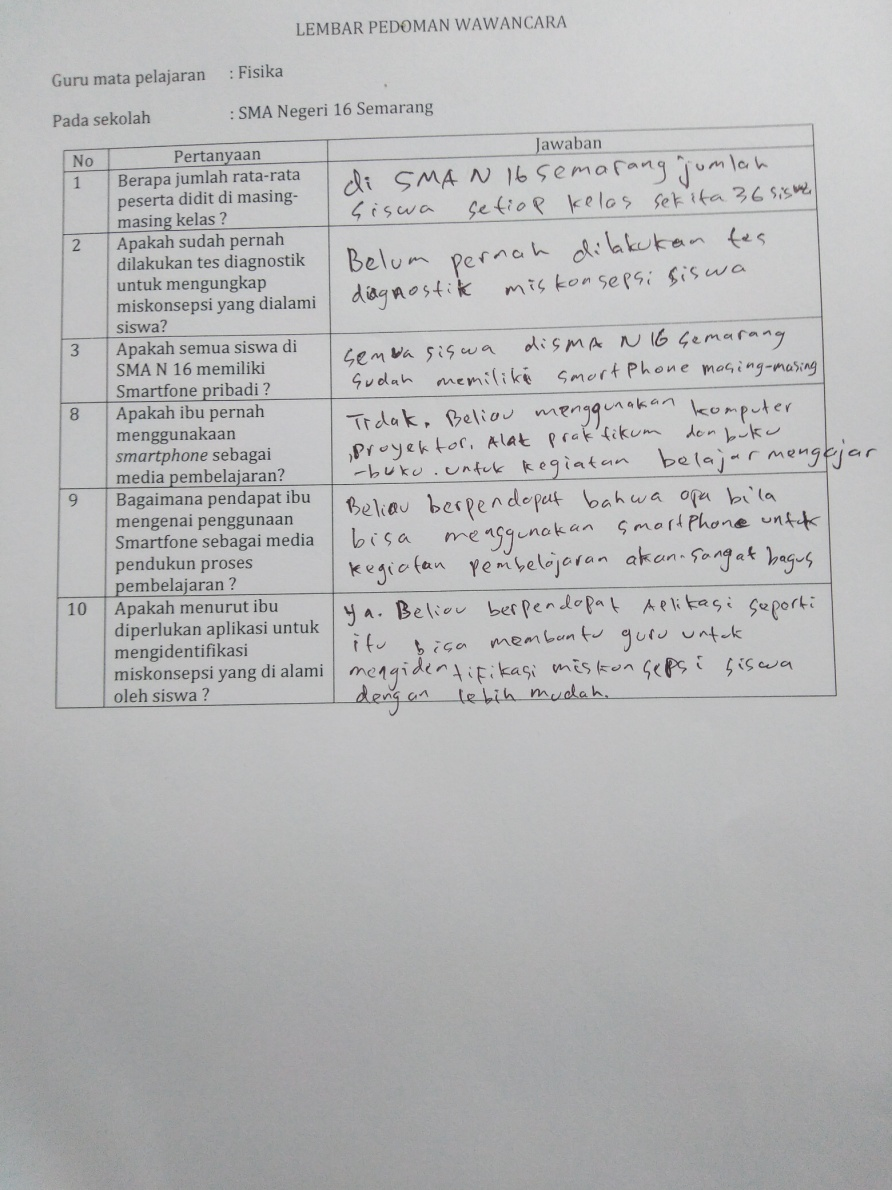 LEMBAR PEDOMAN WAWANCARA
Guru mata pelajaran : Fisika
Pada sekolah : SMA Negeri 16 Semarang
No Pertanyaan Jawaban
1
Berapa jumlah rata-rata
peserta didit di masing-
masing kelas ?
di SMA N 16 semarang jumlah
siswa setiap kelas sekita 36 siswa
2
Apakah sudah pernah
dilakukan tes diagnostik
untuk mengungkap
miskonsepsi yang dialami
siswa?
Belum pernah dilakukan tes
diagnostik miskonsepsi siswa
3
Apakah semua siswa di
SMA N 16 memiliki
Smartfone pribadi ?
semua siswa disMA N 16 semarang
sudah memiliki smartphone masing-masing
8
Apakah ibu pernah
menggunakaan
smartphone sebagai
media pembelajaran?
Tidak. Beliau menggunakan komputer
,proyektor, Alat praktikum dan buku
-buku. untuk kegiatan belajar mengajar
9
Bagaimana pendapat ibu
mengenai penggunaan
Smartfone sebagai media
pendukun proses
pembelajaran ?
Beliau berpendapat bahwa apa bila
bisa menggunakan smartphone untuk
kegiatan pembelajaran akan sangat bagus
10
Apakah menurut ibu
diperlukan aplikasi untuk
mengidentifikasi
miskonsepsi yang di alami
oleh siswa ?
ya. Beliau berpendapat Aplikasi seporti
itu bisa membantu guru untuk
mengidentifikasi miskonsepsi siswa
dengan lebih mudah.